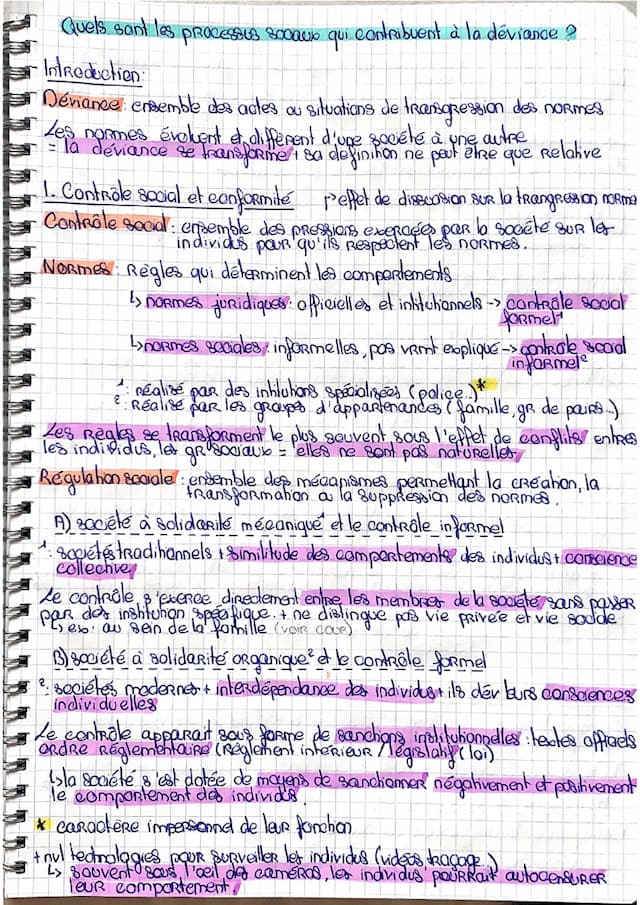 Quels sont les processus sociaux qui contribuent à la déviance ?
Introduction:
Déviance: ensemble des actes ou situations de transgression des normes
Les normes évoluent et diffèrent d'une société à une autre
= la déviance se transforme + sa definition ne peut être que relative
1. Contrôle social et conformité ↱ effet de dissuasion sur la trangression norme
Contrôle social: ensemble des pressions exercées par la société sur les
individus pour qu'ils respectent les normes.
Normes: Règles qui déterminent les comportements
↳ normes juridiques: officielles et intitutionnels -> contrôle social
formel¹
↳ normes sociales: informelles, pas vrmt expliqué -> contrôle social
informel²
¹: réalisé par des intitutions spécialisées (police..)*
²: Réalisé par les groups d'appartenances (famille, gr de pairs..)
Les Règles se transforment le plus souvent sous l'effet de conflits entres
les individus, les gr sociaux = elles ne sont pas naturelles.
Régulation sociale: ensemble des mécanismes permettant la création, la
transformation ou la suppression des normes.
A) société à solidarité mécanique¹ et le contrôle informel
¹: sociétés traditionnels + similitude des comportements des individus + conscience
collective
Le contrôle s'exerce directement entre les membres de la société sans passer
par des institution spécifique. + ne distingue pas vie privée et vie sociale
↳ ex: au sein de la famille (voir cour)
B) société à solidarité organique² et le contrôle formel
²: sociétés modernes + interdépendance des individus + ils dév leurs consciences
individuelles
Le contrôle apparait sous forme de sanctions institutionnelles: textes officiels
ordre Réglementaire (Règlement intérieur / législatif (loi)
↳ la société s'est dotée de moyens de sanctionner négativement et positivement
le comportement des individus.
* caractère impersonnel de leur fonction
+ nvl technologies pour surveiller les individus (vidéos traçage..)
↳ souvent sous l'oeil des caméras, les individus pourrait autocensurer
leur comportement.